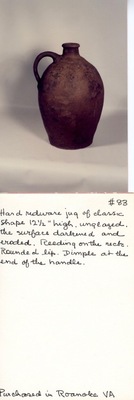 #83
Hard redware jug of classic
shape 12½" high, unglazed,
the surface darkened and
eroded. Reeding on the neck.
Rounded lip. Dimple at the
end of the handle.
Purchased in Roanoke VA